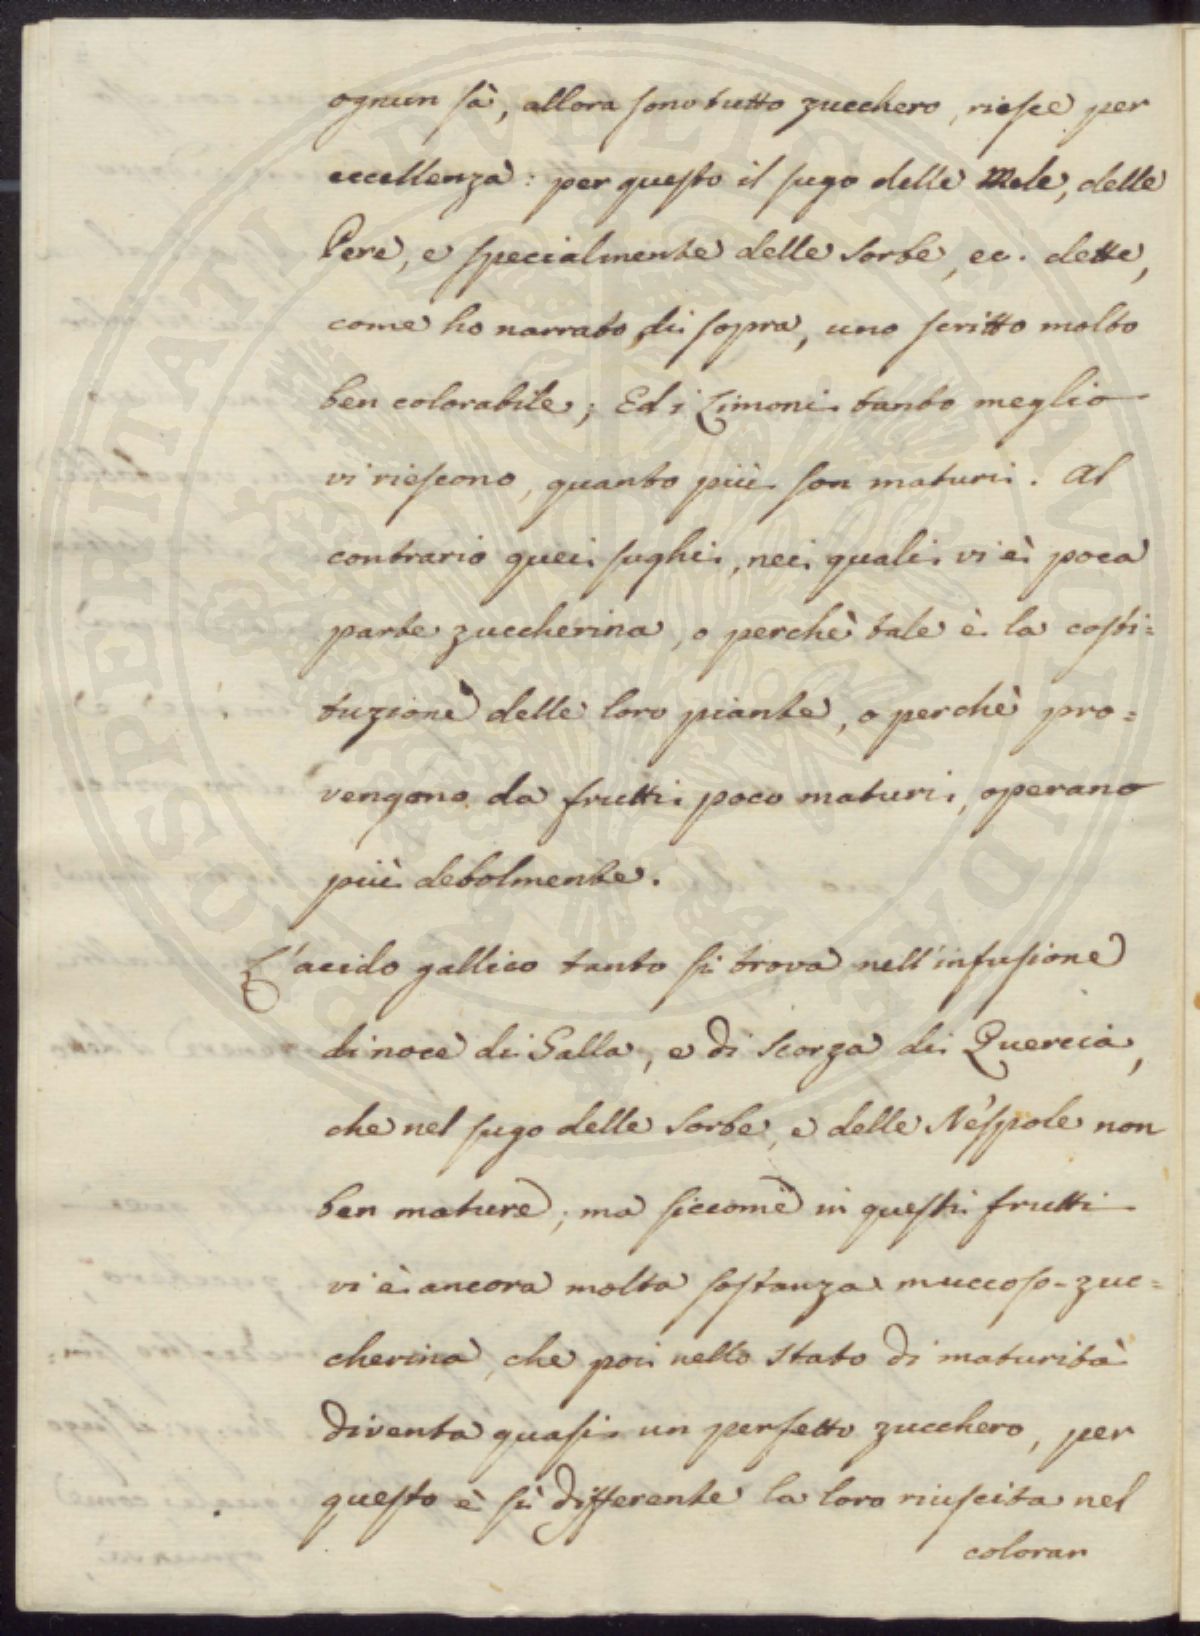 ognun sà, allora sono tutto zucchero, riesce per
eccellenza: per questo il sugo delle Mele, delle
Pere, e specialmente delle sorbe, ec. dette,
come ho narrato di sopra, uno scritto molto
ben colorabile; Ed i Limoni tanto meglio
vi riescono, quanto più son maturi. Al
contrario quei sughi, nei quali vi è poca
parte zuccherina, o perchè tale è la costi=
tuzione delle loro piante, o perchè pro=
vengono da frutti poco maturi, operano
più debolmente.
L'acido gallico tanto si trova nell'infusione
di noce di Galla, e di scorza di Quercia,
che nel sugo delle sorbe, e delle Nèspole non
ben mature; ma siccome in questi frutti
vi è ancora molta sostanza muccoso-zuc=
cherina, che poi nello stato di maturità
diventa quasi un perfetto zucchero, per
questo è sì differente la loro riuscita nel
coloran
PROSPERITATI PUBLICAE AUGENDAE